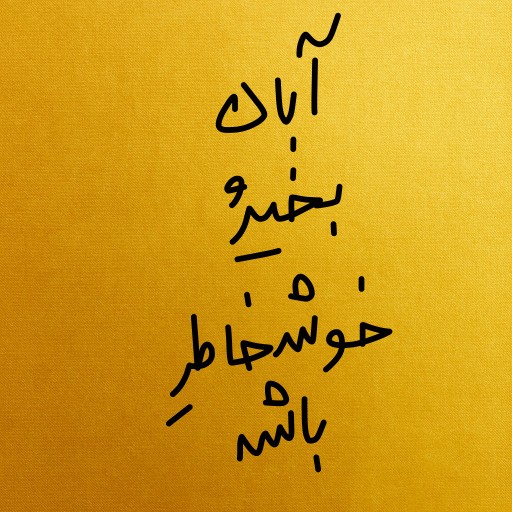 آبان
بخیرُِ
خوشخاطرِ
باشه